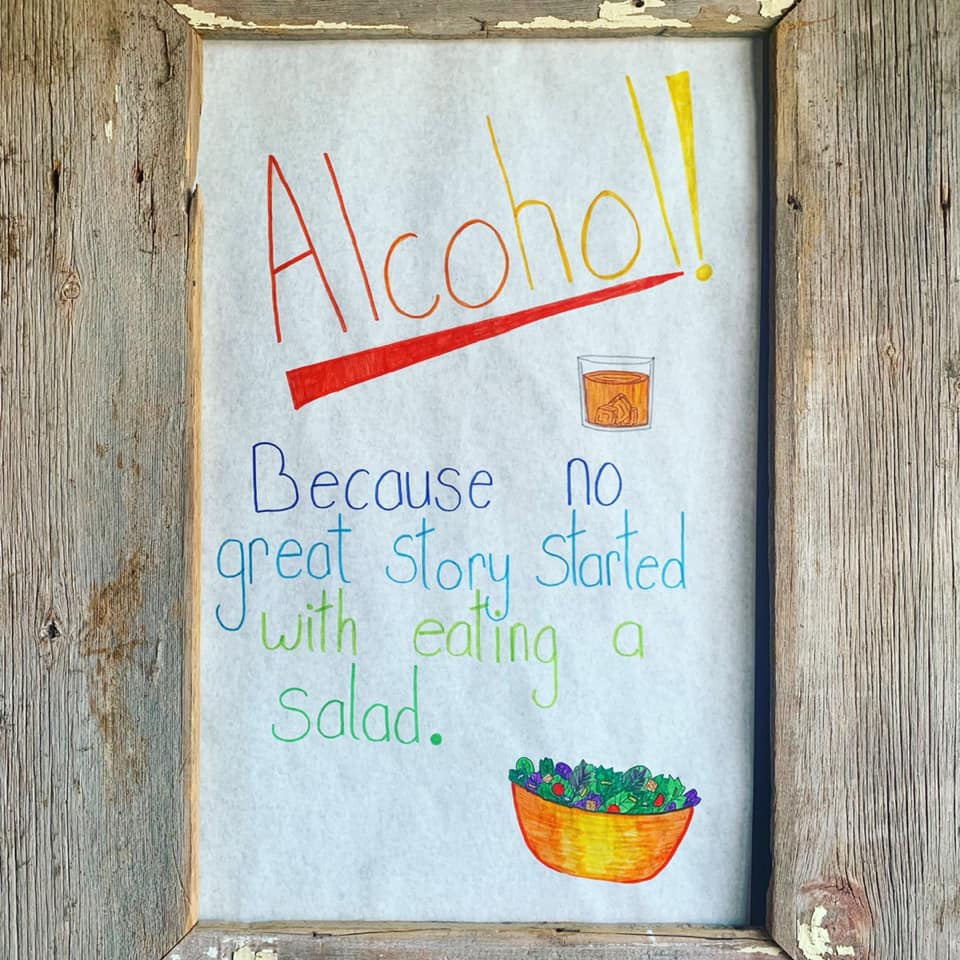 Alcohol!
Because no
great story started
with eating a
salad.